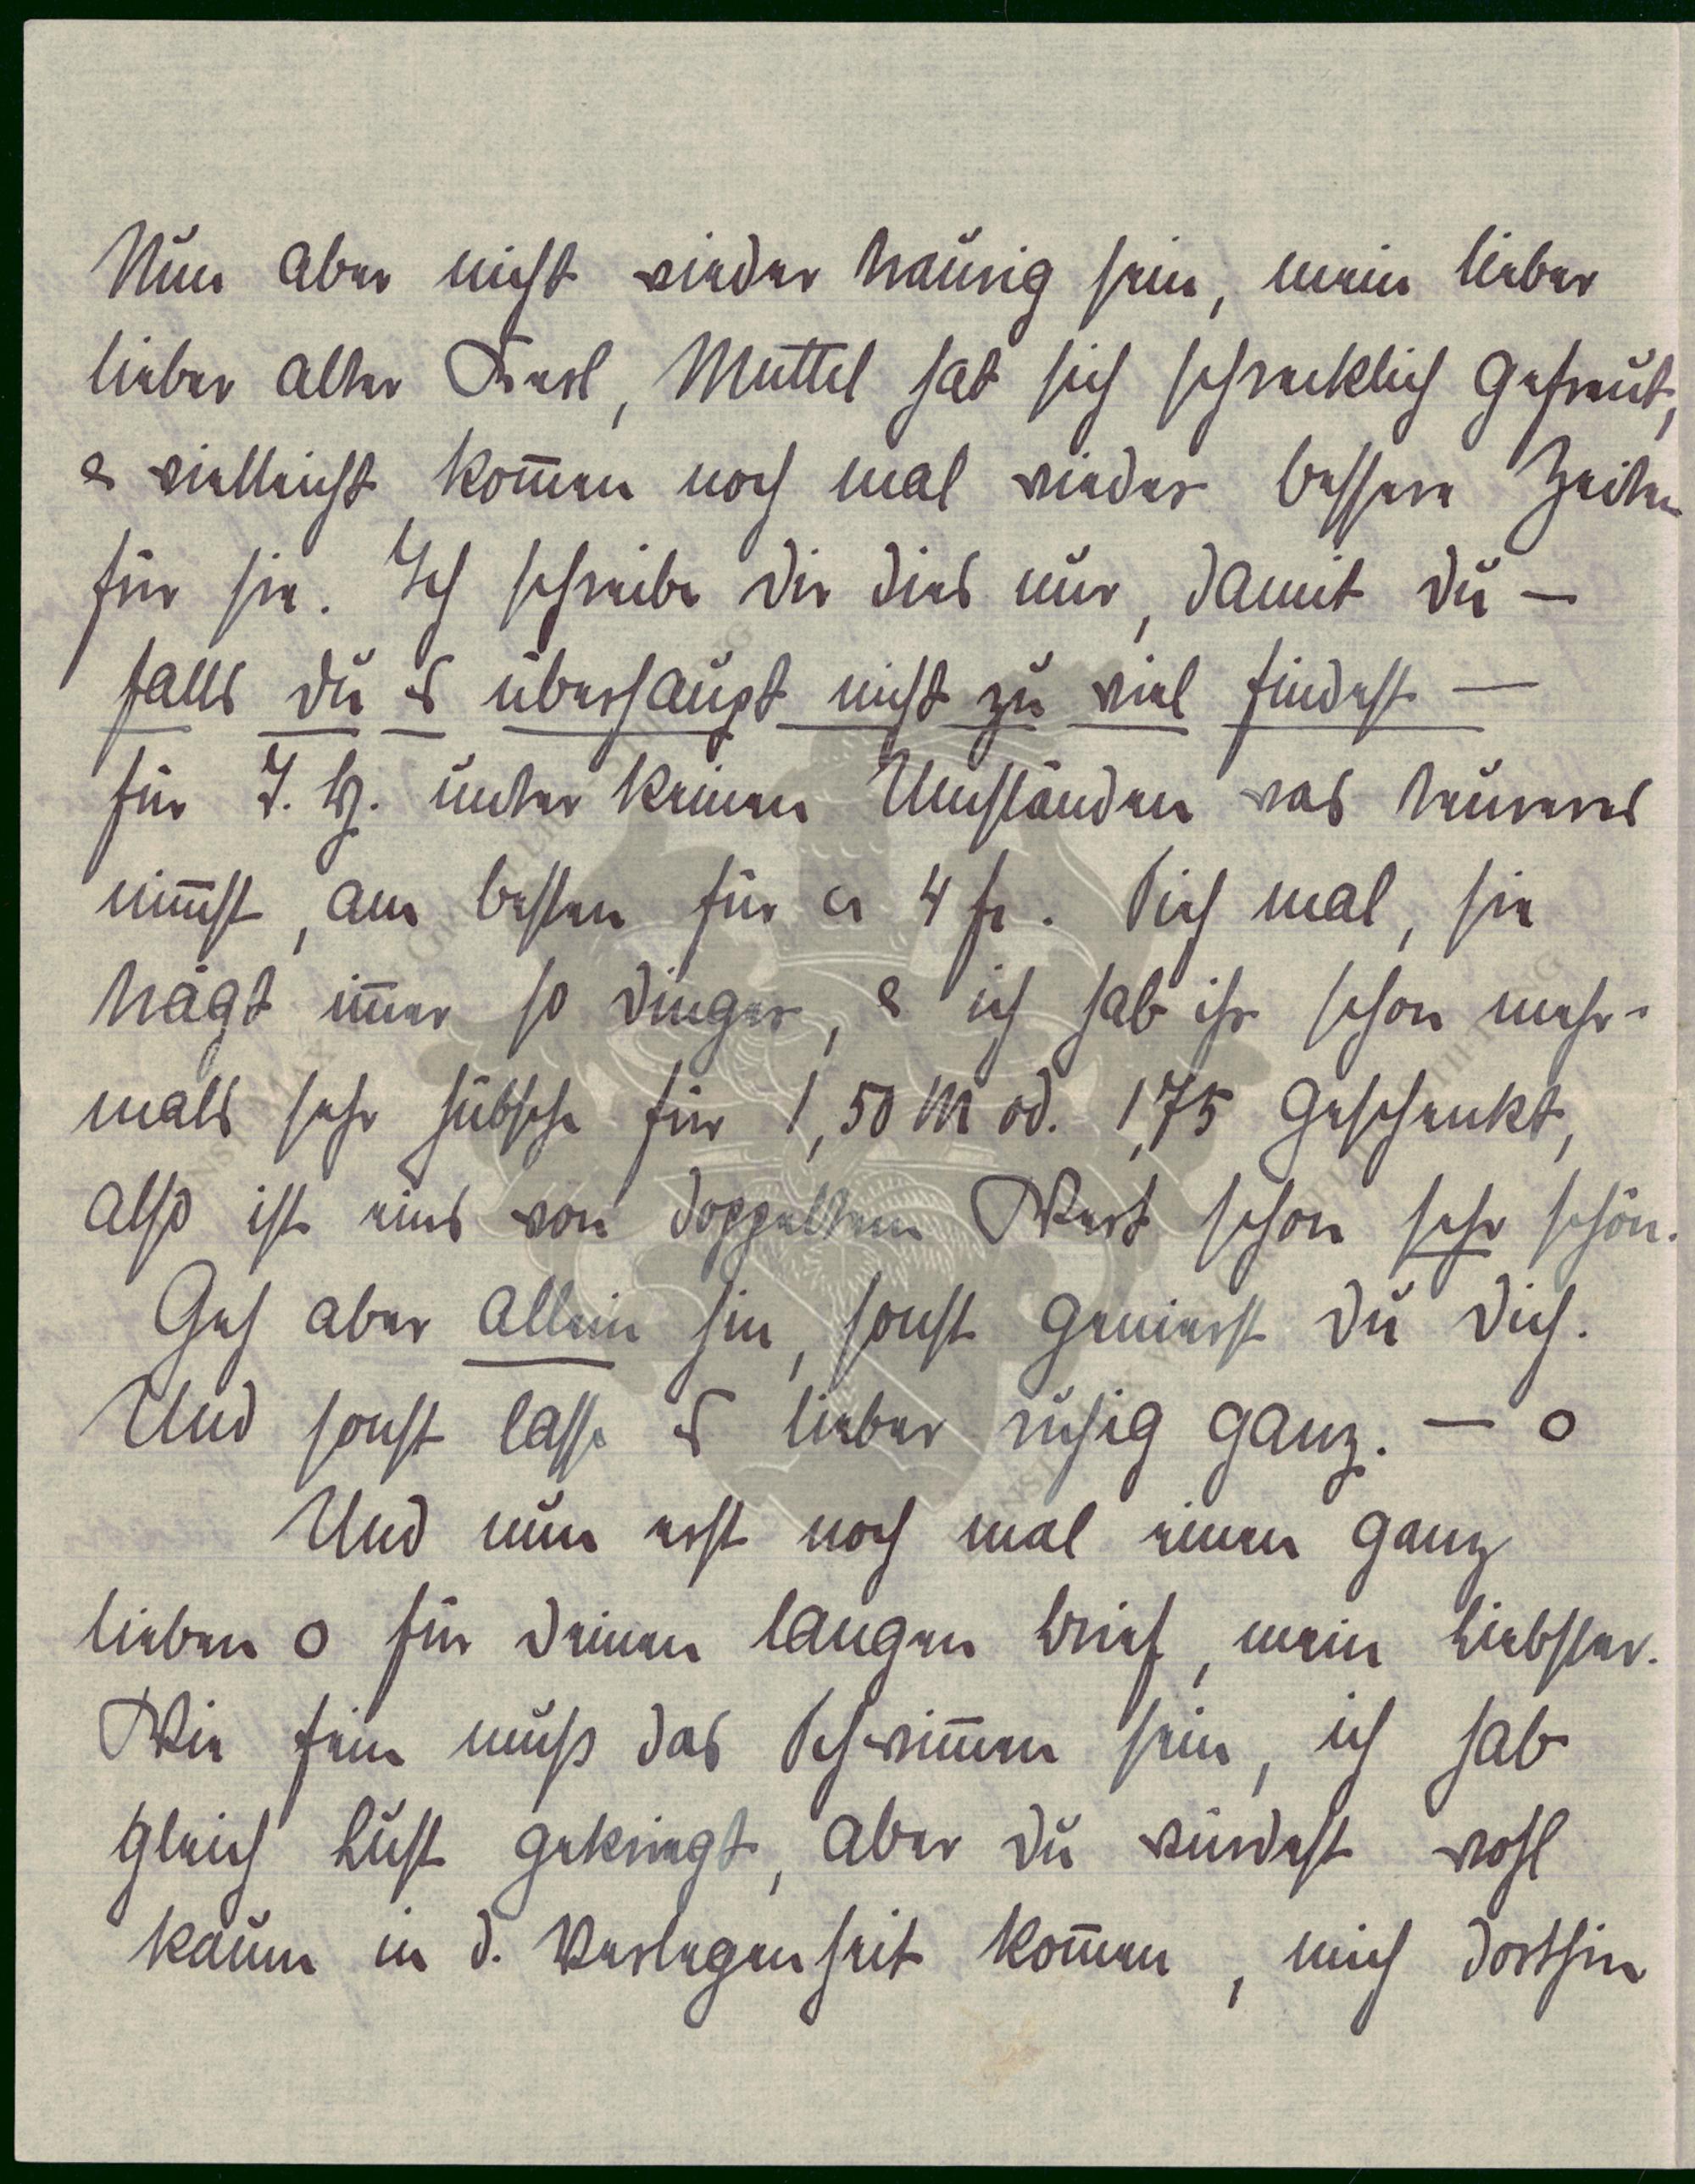 Nun aber nicht wieder traurig sein, mein lieber
lieber alter Kerl, Muttel hat sich schrecklich gefreut,
& vielleicht kom̅en noch mal wieder bessere Zeiten
für sie. Ich schreibe dir dies nur, damit du —
falls du es überhaupt nicht zu viel findest —
für I. H. unter keinen Umständen was teureres
nim̅st, am besten für ca 4 fr. Sieh mal, sie
trägt im̅er so Dinger, & ich hab ihr schon mehr-
mals sehr hübsche für 1,50 M od. 1,75 geschenkt,
also ist eins von doppeltem Wert schon sehr schön.
Geh aber allein hin, sonst genierst du dich.
Und sonst lasse es lieber ruhig ganz. — o
Und nun erst noch mal einen ganz
lieben o für deinen langen Brief, mein Liebster.
Wie fein muß das Schwim̅en sein, ich hab
gleich Lust gekriegt, aber du würdest wohl
kaum in d. Verlegenheit kom̅en, mich dorthin